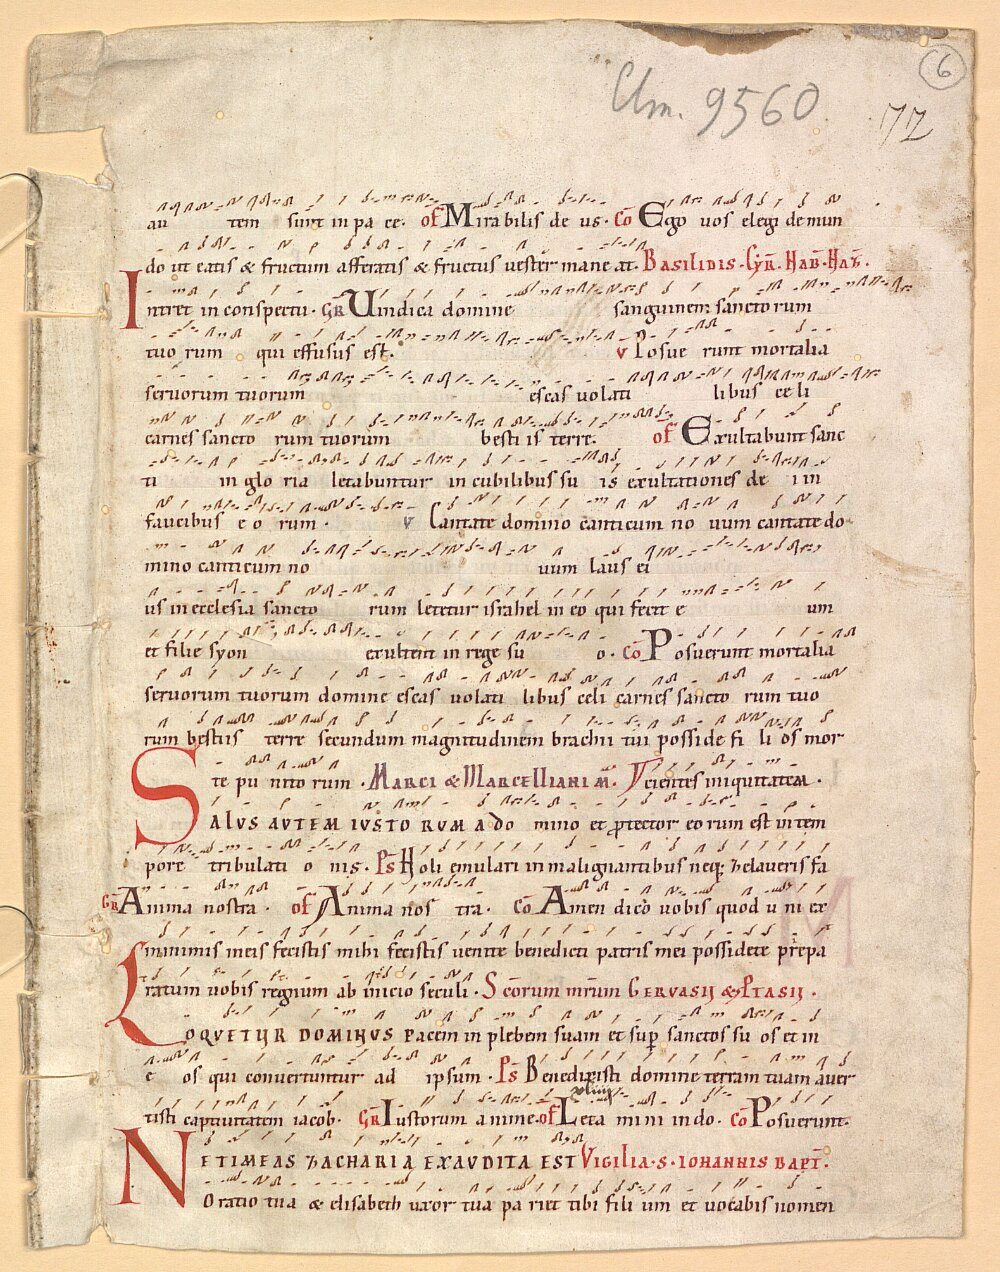 6
Clm. 9560
72
au tem sunt in pa ce. of Mirabilis de us. Co Ego uos elegi de mun
do ut eatis & fructum afferatis & fructus uester mane at. Basilidis. Cyr. Nab. Naz.
Intret in conspectu. Gr Uindica domine sanguinem sanctorum
tuo rum qui effusus est. v Posue runt mortalia
seruorum tuorum escas uolati libus ce li
carnes sancto rum tuorum besti is terre. of Exultabunt sanc
ti in glo ria letabuntur in cubilibus su is exultationes de i in
faucibus e o rum. v Cantate domino canticum no uum cantate do
mino canticum no uum laus ei
us in ecclesia sancto rum letetur israhel in eo qui fecit e um
et filie syon exultent in rege su o. Co Posuerunt mortalia
seruorum tuorum domine escas uolati libus celi carnes sancto rum tuo
rum bestiis terre secundum magnitudinem brachii tui posside fi li os mor
te pu nito rum. Marci & Marcelliani m. Scientes iniquitatem.
Salus autem iusto rum a do mino et protector eo rum est in tem
pore tribulati o nis. Ps Noli emulari in malignantibus neq; zelaueris fa
Gr Anima nostra. of Anima nos tra. Co Amen dico uobis quod u ni ex
minimis meis fecistis mihi fecistis uenite benedicti patris mei possidete prepa
ratum uobis regnum ab inicio seculi. Scorum mrum Geruasii & Ptasii.
Loquetur dominus pacem in plebem suam et sup sanctos su os et in
e os qui conuertuntur ad ipsum. Ps Benedixisti domine terram tuam auer
tisti captiuitatem iacob. Gr Iustorum anime. of Leta mini in do. Co Posuerunt.
Ne timeas zacharia exaudita est Vigilia. S. Iohannis Bapt.
Oratio tua & elisabeth uxor tua pa riet tibi fili um et uocabis nomen